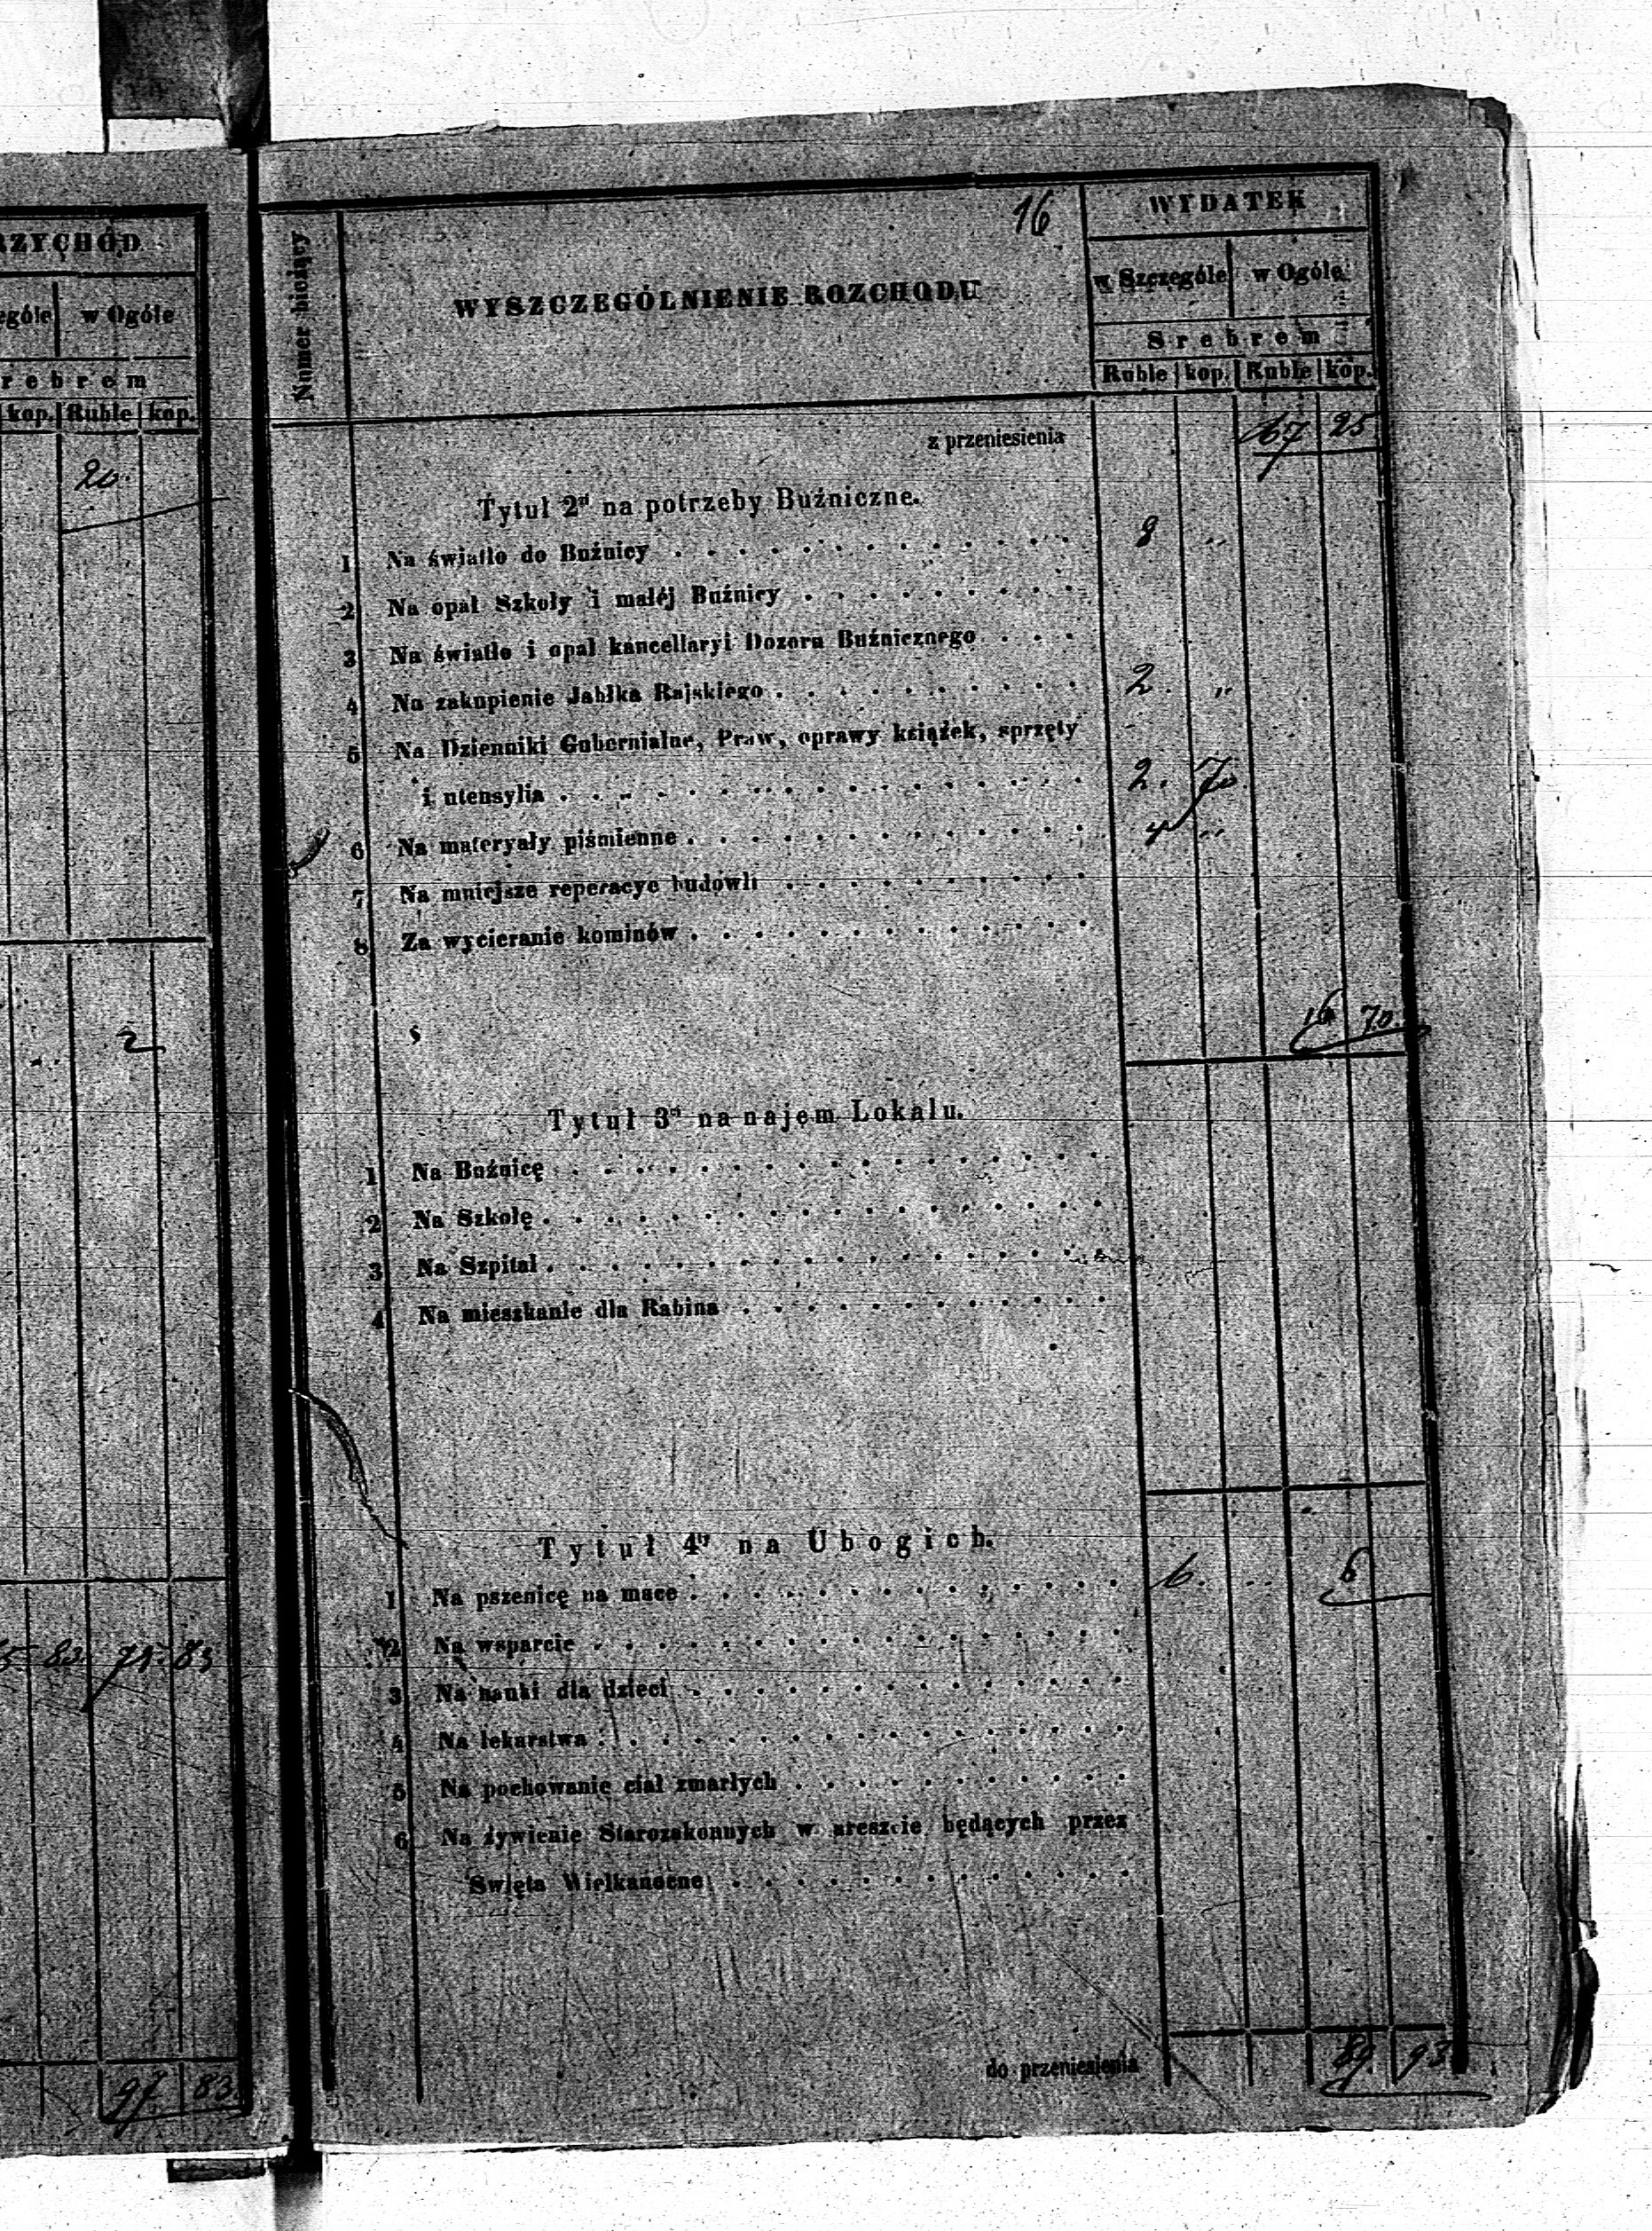 RZYCHÓD
ególe w Ogóle
rebrem
kop. Ruble kop.
20
2
83 75 83
97 83
16
Numer bieżący
WYSZCZEGÓLNIENIE ROZCHODU
WYDATEK
w Szczególe w Ogóle
Srebrem
Ruble kop. Ruble kop.
z przeniesienia 67 25
Tytuł 2gi na potrzeby Buźniczne.
1 Na światło do Buźnicy 8 "
2 Na opał Szkoły i małéj Buźnicy
3 Na światło i opał kancellaryi Dozoru Buźnicznego
4 Na zakupienie Jabłka Rajskiego 2 "
5 Na Dzienniki Gubernialne, Praw, oprawy książek, sprzęty
i utensylia 2. 70
6 Na materyały piśmienne 4 "
7 Na mniejsze reperacye budowli
8 Za wycieranie kominów
16 70
Tytuł 3ci na najem Lokalu.
1 Na Buźnicę
2 Na Szkołę
3 Na Szpital
4 Na mieszkanie dla Rabina
Tytuł 4ty na Ubogich.
1 Na pszenicę na mace 6. " 6
2 Na wsparcie
3 Na nauki dla dzieci
4 Na lekarstwa
5 Na pochowanie ciał zmarłych
6 Na żywienie Starozakonnych w areszcie będących przez
Swięta Wielkanocne
do przeniesienia 89 93